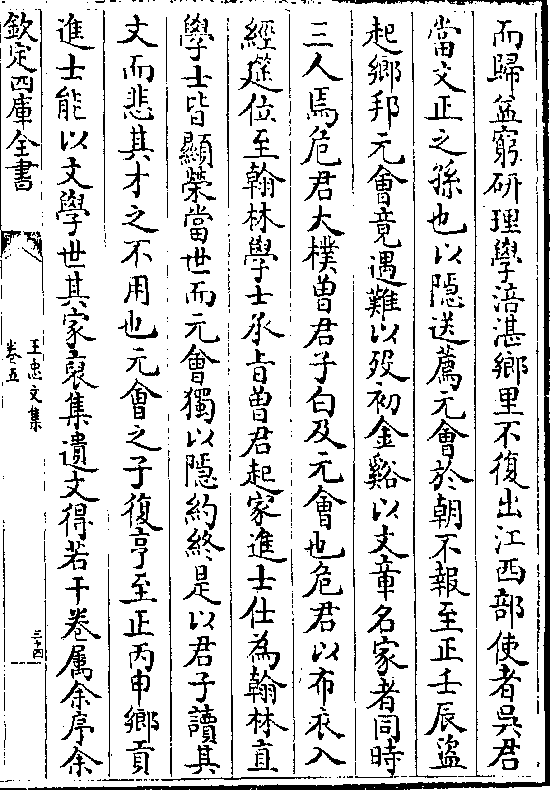 而歸益窮研理學涪湛鄉里不復出江西部使者吳君
當文正之孫也以隱送薦元會於朝不報至正壬辰盜
起鄉邦元會竟遇難以歿初金谿以文章名家者同時
三人焉危君大樸曽君子白及元會也危君以布衣入
經筵位至翰林學士承旨曽君起家進士仕為翰林直
學士皆顯榮當世而元會獨以隱約終是以君子讀其
文而悲其才之不用也元會之子復亨至正丙申鄉貢
進士能以文學世其家裒集遺文得若干卷属余序余
欽定四庫全書
王忠文集
卷五
三十四